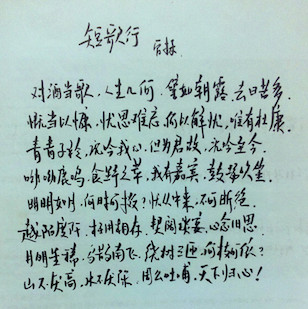 短歌行
曹操
对酒当歌，人生几何，譬如朝露，去日苦多。
慨当以慷，忧思难忘，何以解忧，唯有杜康。
青青子衿，悠悠我心，但为君故，沉吟至今。
呦呦鹿鸣，食野之苹，我有嘉宾，鼓瑟吹笙。
明明如月，何时可掇？忧从中来，不可断绝。
越陌度阡，枉用相存，契阔谈宴，心念旧恩。
月明星稀，乌鹊南飞，绕树三匝，何枝可依？
山不厌高，水不厌深，周公吐哺，天下归心！